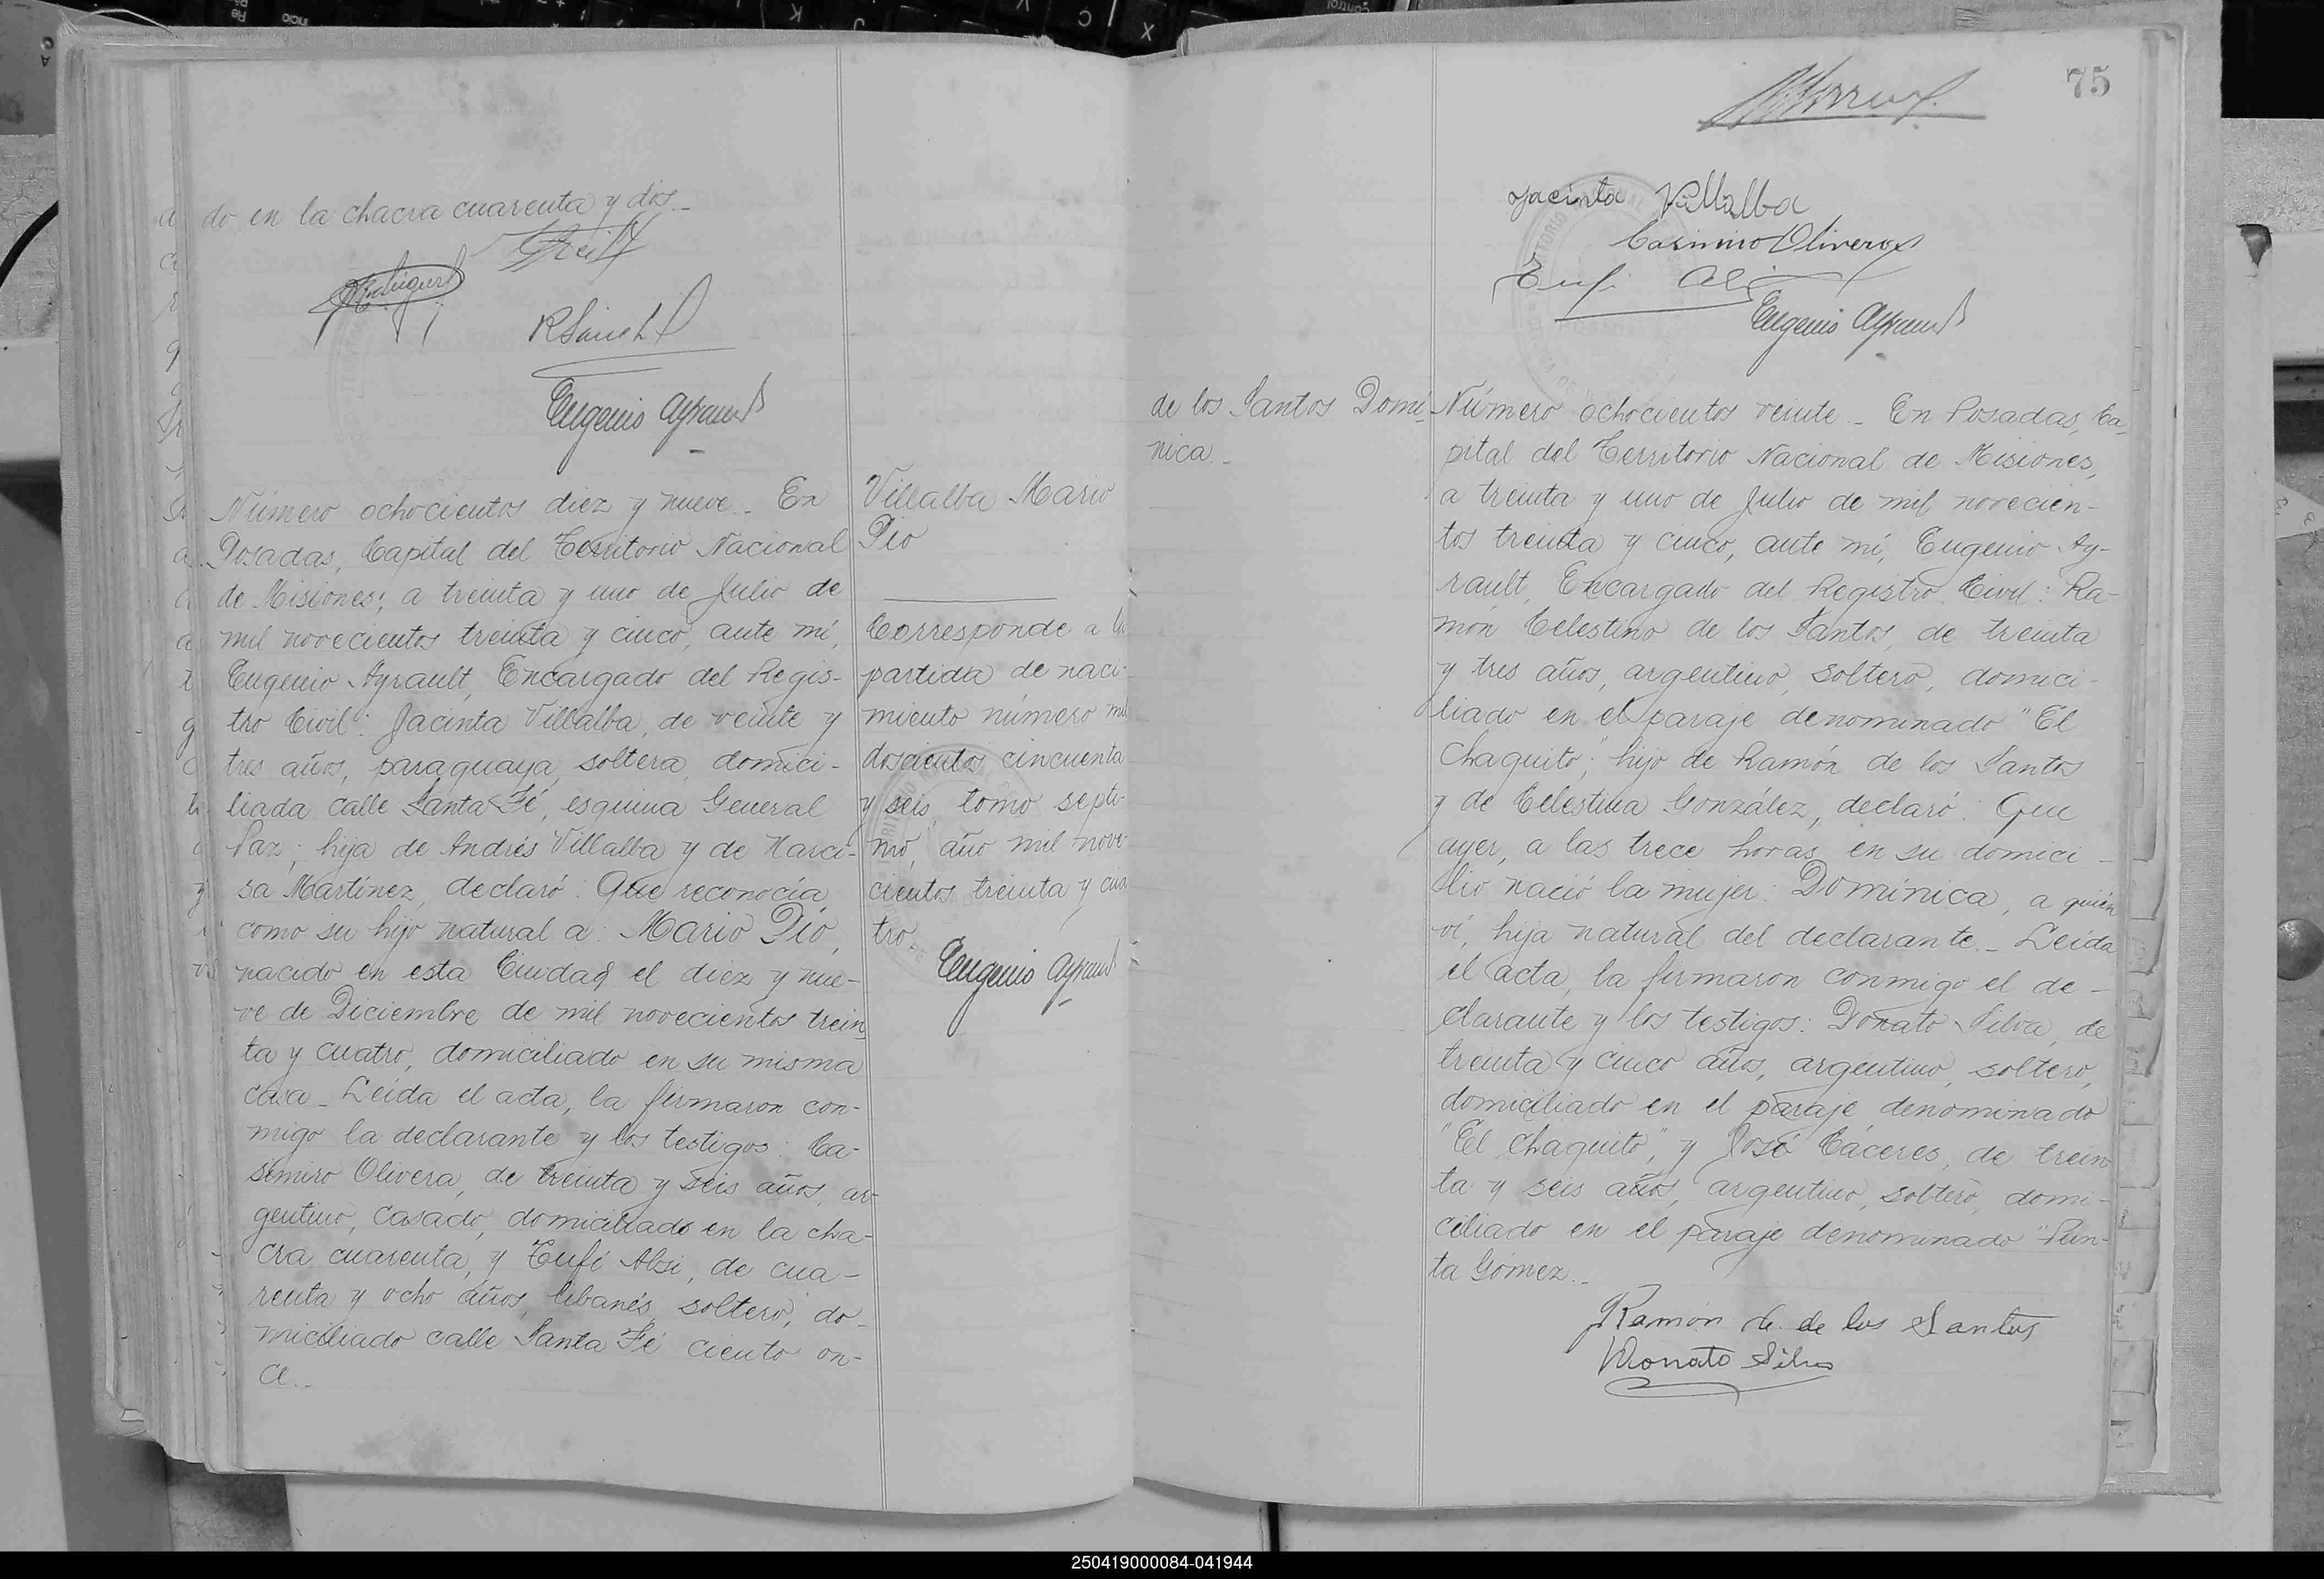 do en la chacra cuarenta y dos._
Eugenio Ayrault
Número ochocientos diez y nueve._ En
Posadas, Capital del Territorio Nacional
de Misiones, a treinta y uno de Julio de
mil novecientos treinta y cinco, ante mí,
Eugenio Ayrault, Encargado del Regis-
tro Civil: Jacinta Villalba, de veinte y
tres años, paraguaya, soltera, domici-
liada calle Santa Fé, esquina General
Paz; hija de Andrés Villalba y de Narci-
sa Martínez, declaró: Que reconocía
como su hijo natural a: Mario Pío,
nacido en esta Ciudad el diez y nue-
ve de Diciembre de mil novecientos trein
ta y cuatro, domiciliado en su misma
casa_ Leída el acta, la firmaron con-
migo la declarante y los testigos: Ca-
simiro Olivera, de treinta y seis años, ar-
gentino, casado, domiciliado en la cha-
cra cuarenta, y Tufi Absi, de cua-
renta y ocho años, libanés, soltero, do-
miciliado calle Santa Fé ciento on-
ce._
Villalba Mario
Pio
Corresponde a la
partida de naci-
miento número mil
doscientos cincuenta
y seis, tomo septi-
mo, año mil nove-
cientos treinta y cua
tro.
Eugenio Ayrault
75
Jacinta Villalba
Casimiro Olivera
Eugenio Ayrault
de los Santos Domi-
nica._
Número ochocientos veinte._ En Posadas, Ca-
pital del Territorio Nacional de Misiones,
a treinta y uno de Julio de mil novecien-
tos treinta y cinco, ante mí, Eugenio Ay-
rault, Encargado del Registro Civil: Ra-
món Celestino de los Santos, de treinta
y tres años, argentino, soltero, domici-
liado en el paraje denominado "El
Chaquito", hijo de Ramón de los Santos
y de Celestina González, declaró: Que
ayer, a las trece horas, en su domici-
lio nació la mujer: Dominica, a quién
ví, hija natural del declarante._ Leída
el acta, la firmaron conmigo el de-
clarante y los testigos: Donato Silva, de
treinta y cinco años, argentino, soltero,
domiciliado en el paraje denominado
"El Chaquito", y José Cáceres, de trein
ta y seis años, argentino, soltero, domi-
ciliado en el paraje denominado "Pun-
ta Gómez._
Ramón C. de los Santos
Donato Silva
250419000084-041944